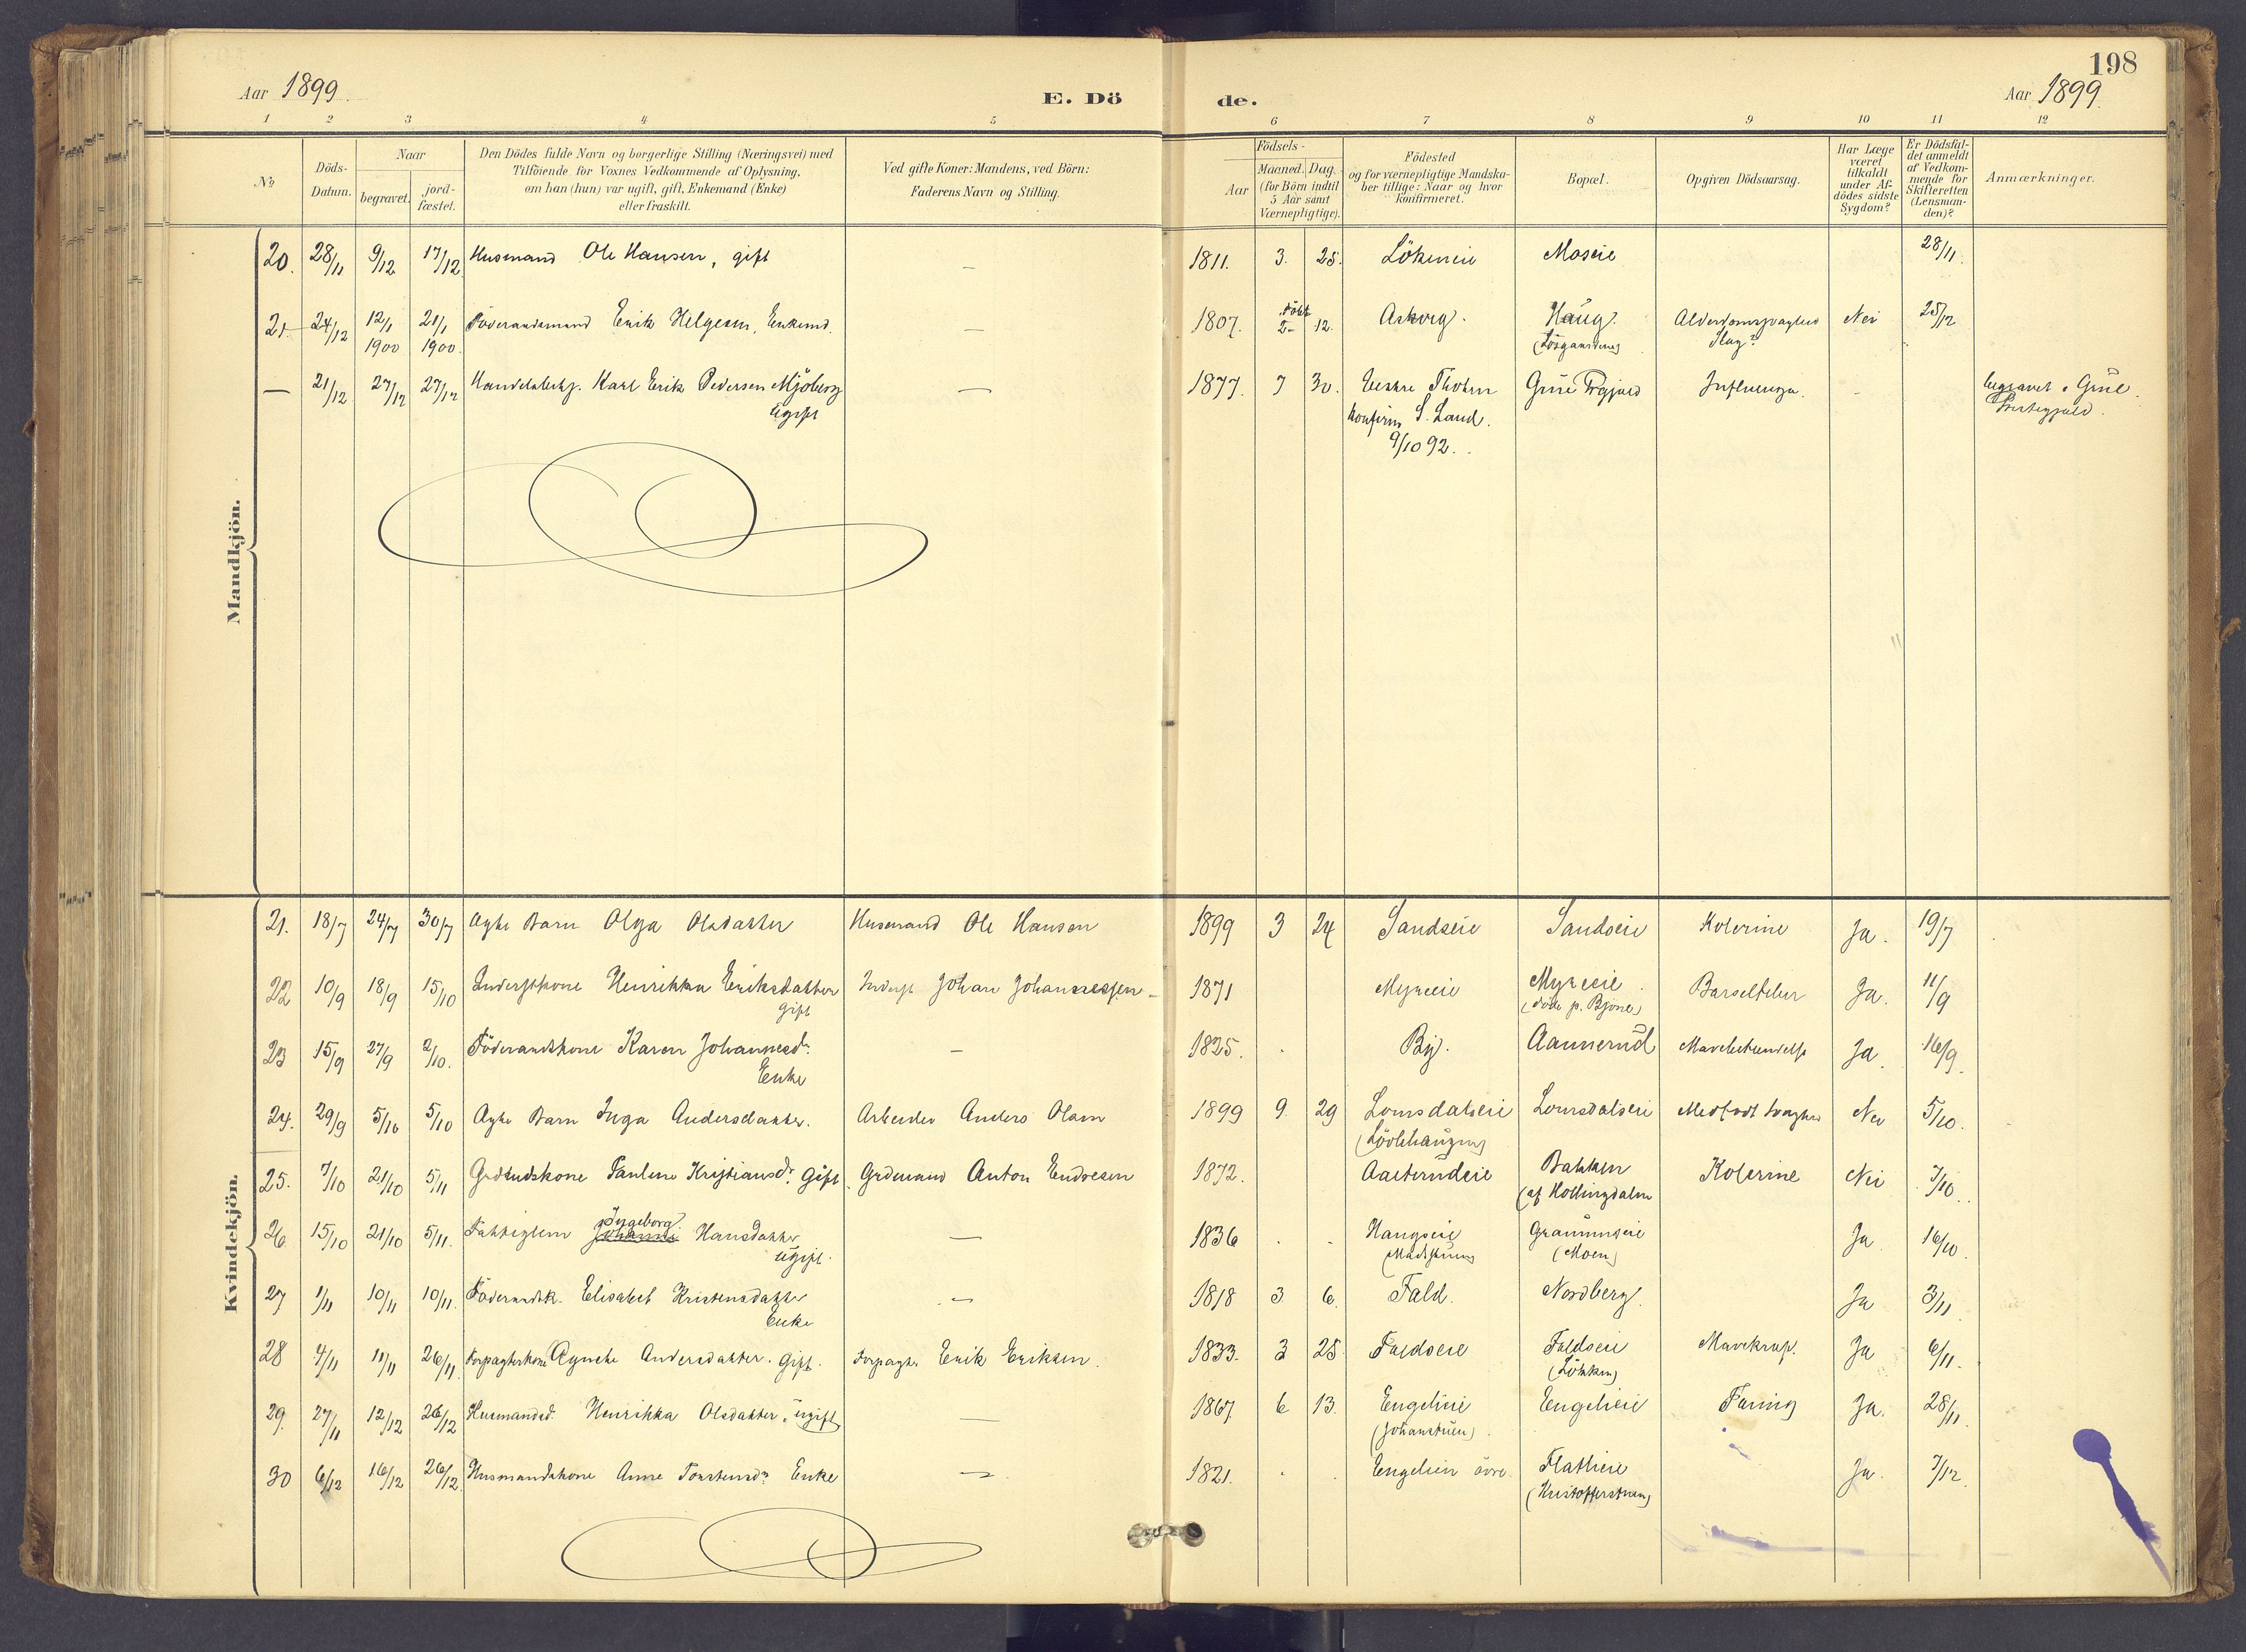 198
Aar 1899.
E. Dö
de.
Aar 1899.
1 2 3 4 5 6 7 8 9 10 11 12
No
Döds-
Datum.
Naar
begravet.
jord-
fæstet.
Den Dödes fulde Navn og borgerlige Stilling (Næringsvei) med
Tilföiende for Voxnes Vedkommende af Oplysning,
om han (hun) var ugift, gift, Enkemand (Enke)
eller fraskilt.
Ved gifte Koner: Mandens, ved Börn:
Faderens Navn og Stilling.
Födsels-
Aar
Maaned. Dag.
(for Börn indtil
5 Aar samt
Værnepligtige).
Födested
og for værnepligtige Mandska-
ber tillige: Naar og hvor
konfirmeret.
Bopæl.
Opgiven Dödsaarsag.
Har Læge
været
tilkaldt
under Af-
dödes sidste
Sygdom?
Er Dödsfal-
det anmeldt
af Vedkom-
mende for
Skifteretten
(Lensman-
den)?
Anmærkninger.
Mandkjön.
20. 28/11 9/12 17/12 Husmand Ole Hansen, gift — 1811. 3. 25. Lökeneie Moseie 28/11.
21 24/12 12/1 1900 21/1 1900. Föderaadsmand Erik Helgesen, Enkemd. — 1807. döbt 2- 12. Askvig. Haug. Nei 25/12
— 21/12 27/12 27/12 Handelsbetj. Karl Erik Pedersen Mjöberg — 1877. 7 30. Vestre Thoten Grue Prgjæld Influenza. - begravet i Grue
ugift konfirm S. Land. Præstegjæld.
9/10 92.
Kvindekjön.
21. 18/7 24/7 30/7 Ægte Barn Olga Olsdatter Husmand Ole Hansen 1899 3 24 Sandseie Sandseie Kolerine Ja. 19/7
22 10/9 18/9 15/10 Inderstkone Henrikka Eriksdatter Inderst Johan Johannessen 1871 Myreeie Myreeie Barselfeber Ja. 11/9
gift (döde p. Bjone)
23 15/9 27/9 2/10. Föderaadskone Karen Johannesd. — 1825. By. Aannerud Mavebetændelse Ja. 16/9.
Enke
24. 29/9 5/10 5/10 Ægte Barn Inga Andersdatter. Arbeider Anders Olsen 1899 9. 29 Lomsdalseie Lomsdalseie Medfödt Svaghed Nei 5/10.
(Lövlihaugen)
25. 7/10 21/10 5/11 Grdmdskone Pauline Kristiansdr. gift. Grdmand Anton Endresen 1872. Bakken Kolerine Nei 7/10.
26. 15/10 21/10 5/11. Fattiglem Johanne Ingeborg Hansdatter — 1836 Haugseie Ja 16/10.
ugift. (Moen)
27 1/11 10/11 10/11. Föderaadsk. Elisabet Kristensdatter — 1818 3. 6. Fald. Nordberg. Ja 3/11.
Enke
28 4/11 11/11 26/11. Forpagterkone Agnete Andersdatter. gift. Forpagt. Erik Eriksen. 1833. 3 25. Faldseie Faldseie Mavekræft. Ja 6/11.
29. 27/11 12/12 26/12 Husmandsd. Henrikka Olsdatter, ugift — 1867. 6 13. Engelieie Engelieie Tæring Ja. 28/11.
(Johanstuen)
30 6/12 16/12 26/12. Husmandskone Anne Torstensdr. Enke — 1821. Engelien övre. Flatlieie Ja. 7/12.
(Kristofferstuen)